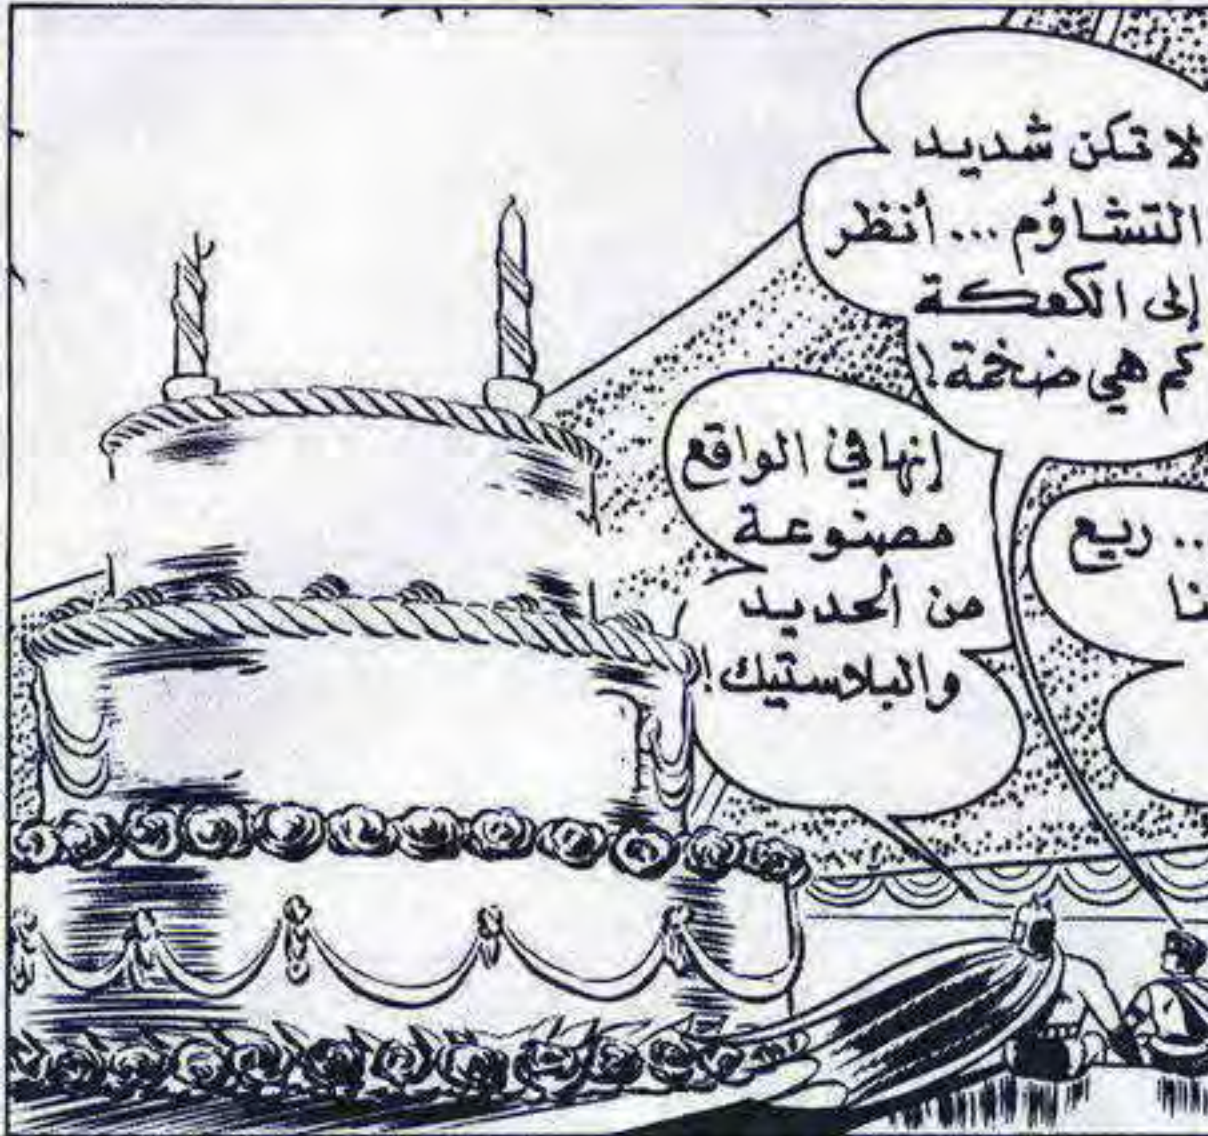 لا تكن شديد
التشاؤم... أنظر
إلى الكعكة
كم هي ضخمة!
إنها في الواقع
مصنوعة
من الحديد
والبلاستيك!
.. ريع
نا